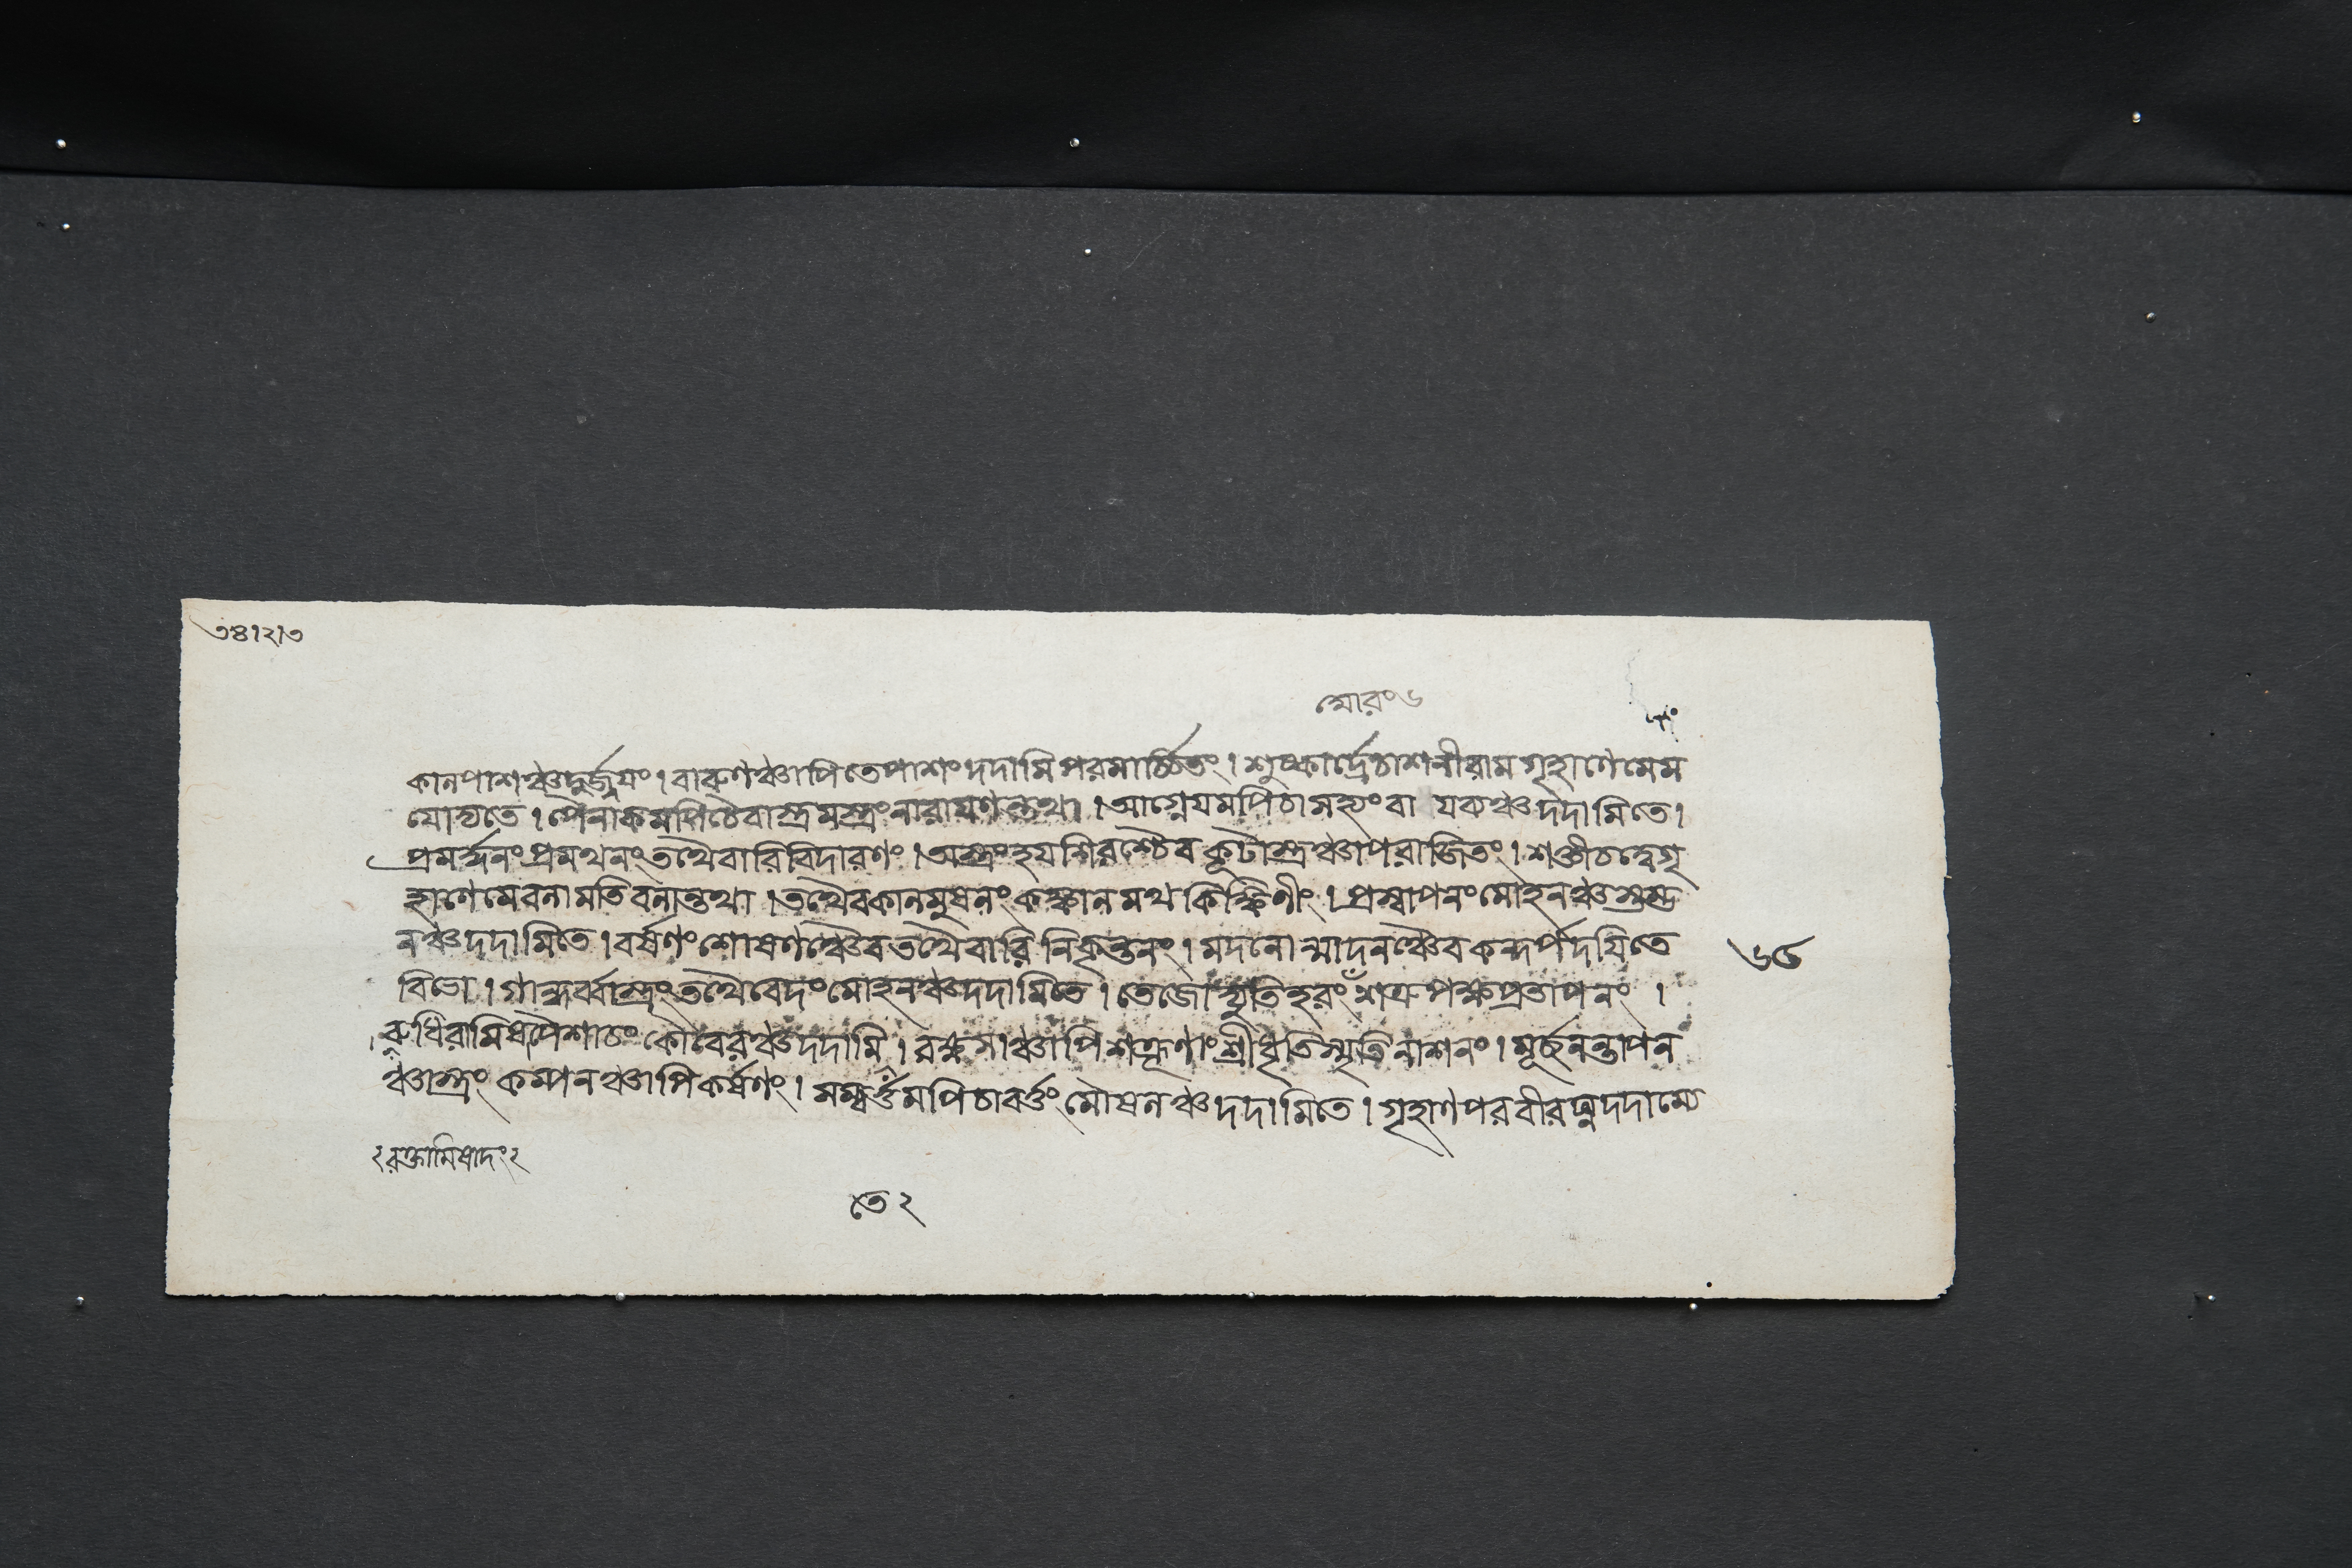 ৩৪।২।৩
মোরং ৬
কালপাশঞ্চদুর্জ্জয়ং। বারুণঞ্চাপিতেপাশং দদামি পরমার্চ্চিতং। শুষ্কার্দ্রেচাশনীরাম গৃহাণেমেম
যোদ্যতে। পৈনাকমপিচৈবাস্ত্রমস্ত্রংনারায়ণন্তথা। আগ্নেয়মপিচামহ্যংবা যবঞ্চ দদামিতে।
প্রমর্দ্দনং প্রমথনং তথৈবারিবিদারণং। অস্ত্রংহয়শিরশ্চৈব কূটাস্ত্রঞ্চাপরাজিতং। শক্তীচদ্বেগৃ
হাণেমেবলামতিবলান্তথা। তথৈবকালমুষলং কঙ্কালমথ কিঙ্কিণীং। প্রস্বাপনং মোহনঞ্চস্তম্ভ
নঞ্চ দদামিতে। বর্ষণং শোষণঞ্চৈব তথৈবারি নিকৃন্তনং। মদনোন্মাদনঞ্চৈব কন্দর্পদয়িতে
৬৫
বিভো। গান্ধর্ব্বাস্ত্রং তথৈবেদং মোহনঞ্চদদামিতে। তেজোদ্যুতিহরং শত্রুপক্ষপ্রতাপনং।
রুধিরামিষপৈশাচং কৌবেরঞ্চদদামি। রক্ষসাঞ্চাপি শত্রূণাং শ্রীধৃতিস্মৃতিনাশনং। মূর্চ্ছনন্তাপন
ঞ্চাস্ত্রং কম্পনঞ্চাপিকর্ষণং। সম্বর্ত্তমপিচাবর্ত্তং মৌষলঞ্চ দদামিতে। গৃহাণপরবীরঘ্নদদাম্যে
২ রক্তামিষাদং ২
তে ২